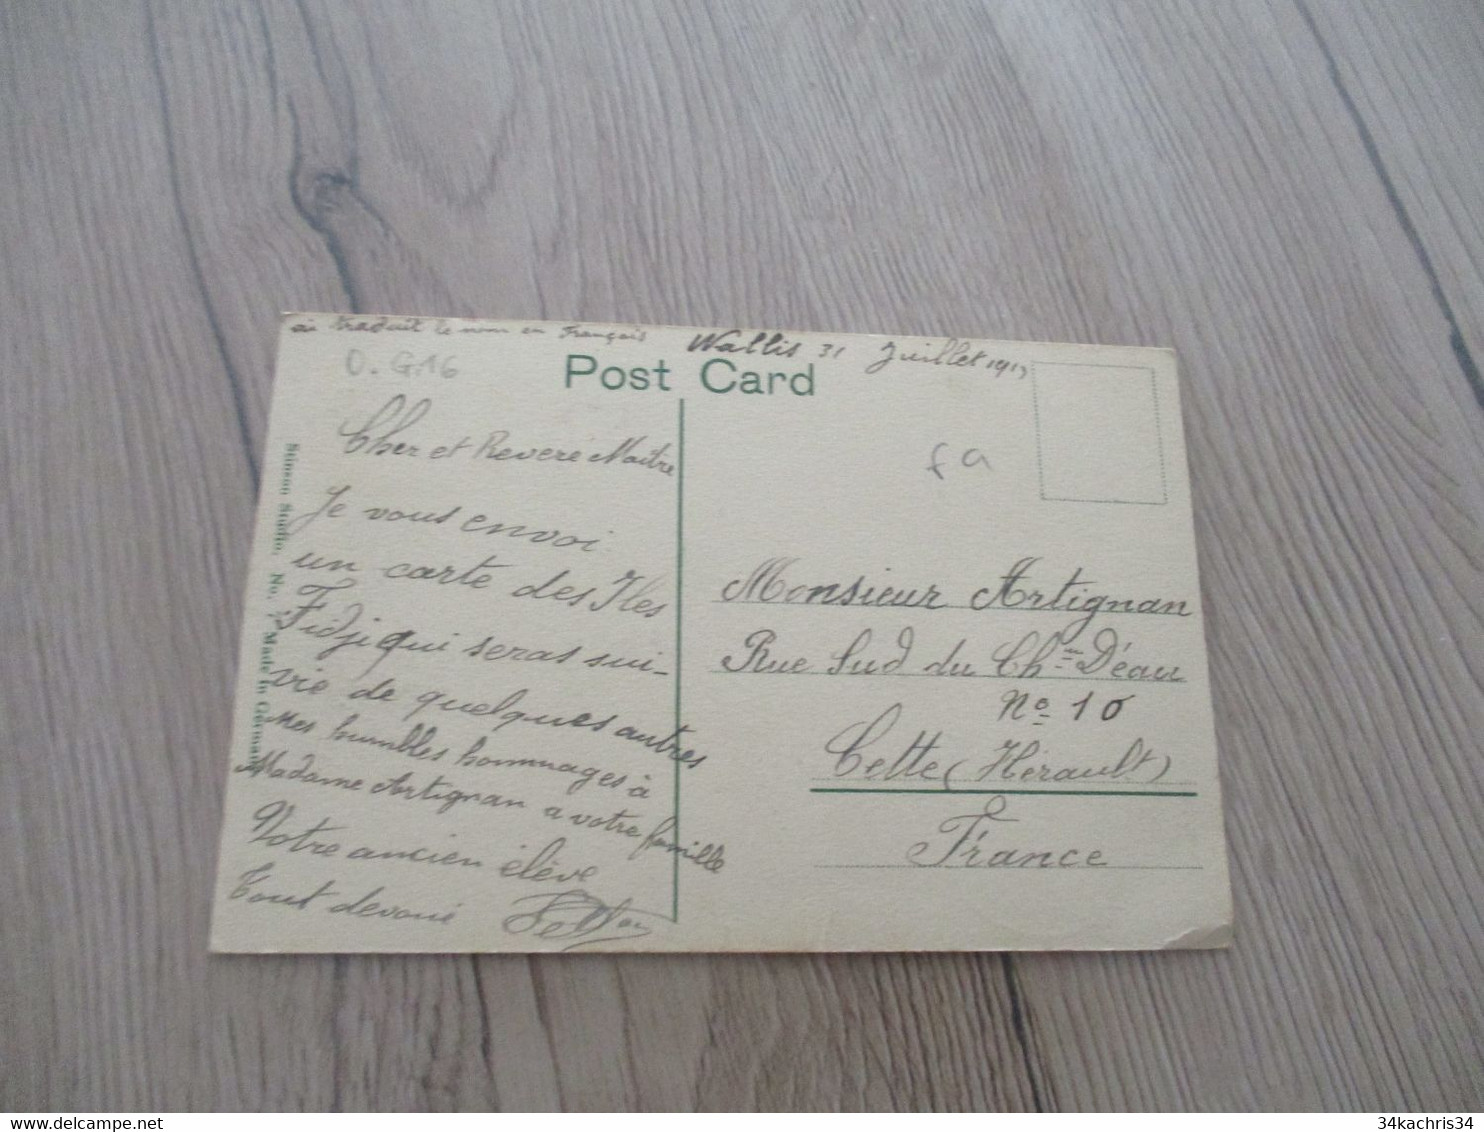 ai traduit le nom en Français
Wallis 31 Juillet 1913
O.G.16
Post Card
fa
Cher et Reveré Maitre
Je vous envoi
un carte des Iles
Fidji qui seras sui-
vie de quelques autres
Mes humbles hommages à
Madame Artignan a votre famille
Votre ancien élève
Tout devoué
Stinson Studio, No. 7 Made in German
Monsieur Artignan
Rue Sud du Chin D'éau
No 10
Cette (Hérault)
France
34kachris34